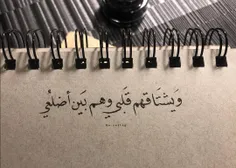 وَيَشتَاقهُم قَلبي وهُم بَين أضلُعي